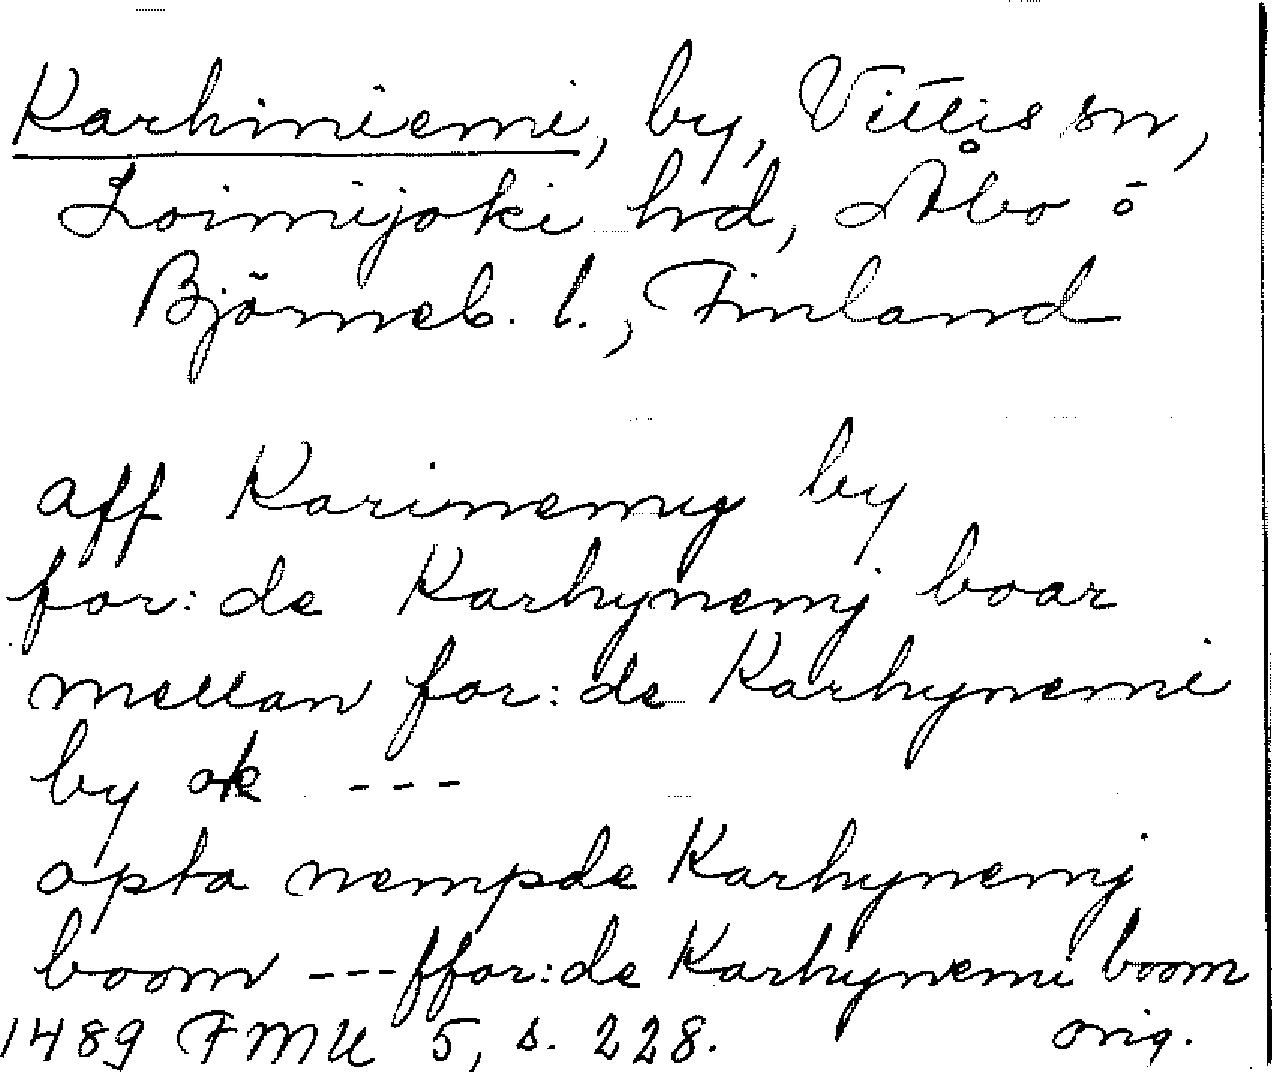 Karhiniemi, by, Vittis sn,
Loimijoki hd, Åbo o
Björneb. l., Finland
aff Karinemy by
for: de Karhynemj boar
mellan for: de Karhynemi
by ok ---
opta nempde Karhynemj
boom --- ffor: de Karhynemi boom
1489 FMU 5, s. 228. orig.